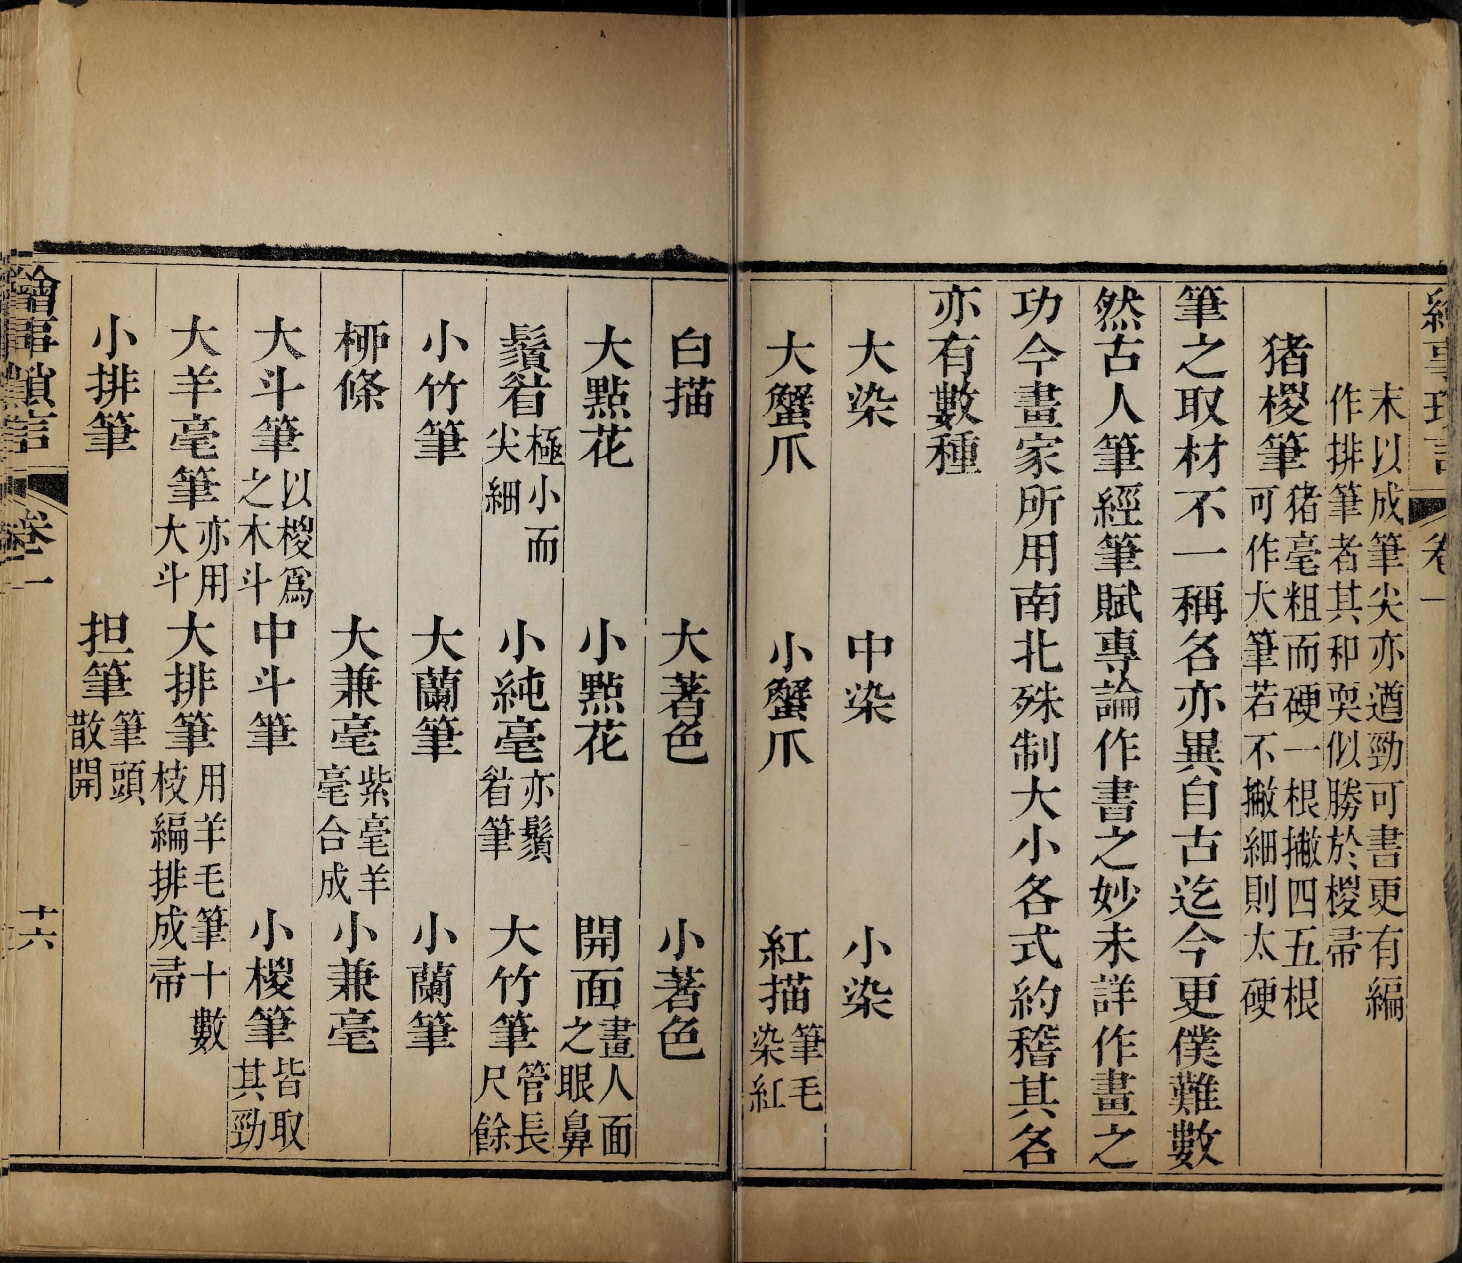 繪事瑣言 卷一
末以成筆尖亦遒勁可書更有編
作排筆者其和耎似勝於椶帚
猪椶筆猪毫粗而硬一根撇四五根
可作大筆若不撇細則太硬
筆之取材不一稱名亦異自古迄今更僕難數
然古人筆經筆賦專論作書之妙未詳作畫之
功今畫家所用南北殊制大小各式約稽其名
亦有數種
大染 中染 小染
大蟹爪 小蟹爪 紅描筆毛染紅
白描 大著色 小著色
大點花 小點花 開面畫人面之眼鼻
鬚眉極小而尖細 小純毫亦鬚眉筆 大竹筆管長尺餘
小竹筆 大蘭筆 小蘭筆
柳條 大兼毫紫毫羊毫合成 小兼毫
大斗筆以椶爲之木斗 中斗筆 小椶筆皆取其勁
大羊毫筆亦用大斗 大排筆用羊毛筆十數枝編排成帚
小排筆 担筆筆頭散開
繪事瑣言 卷一 十六